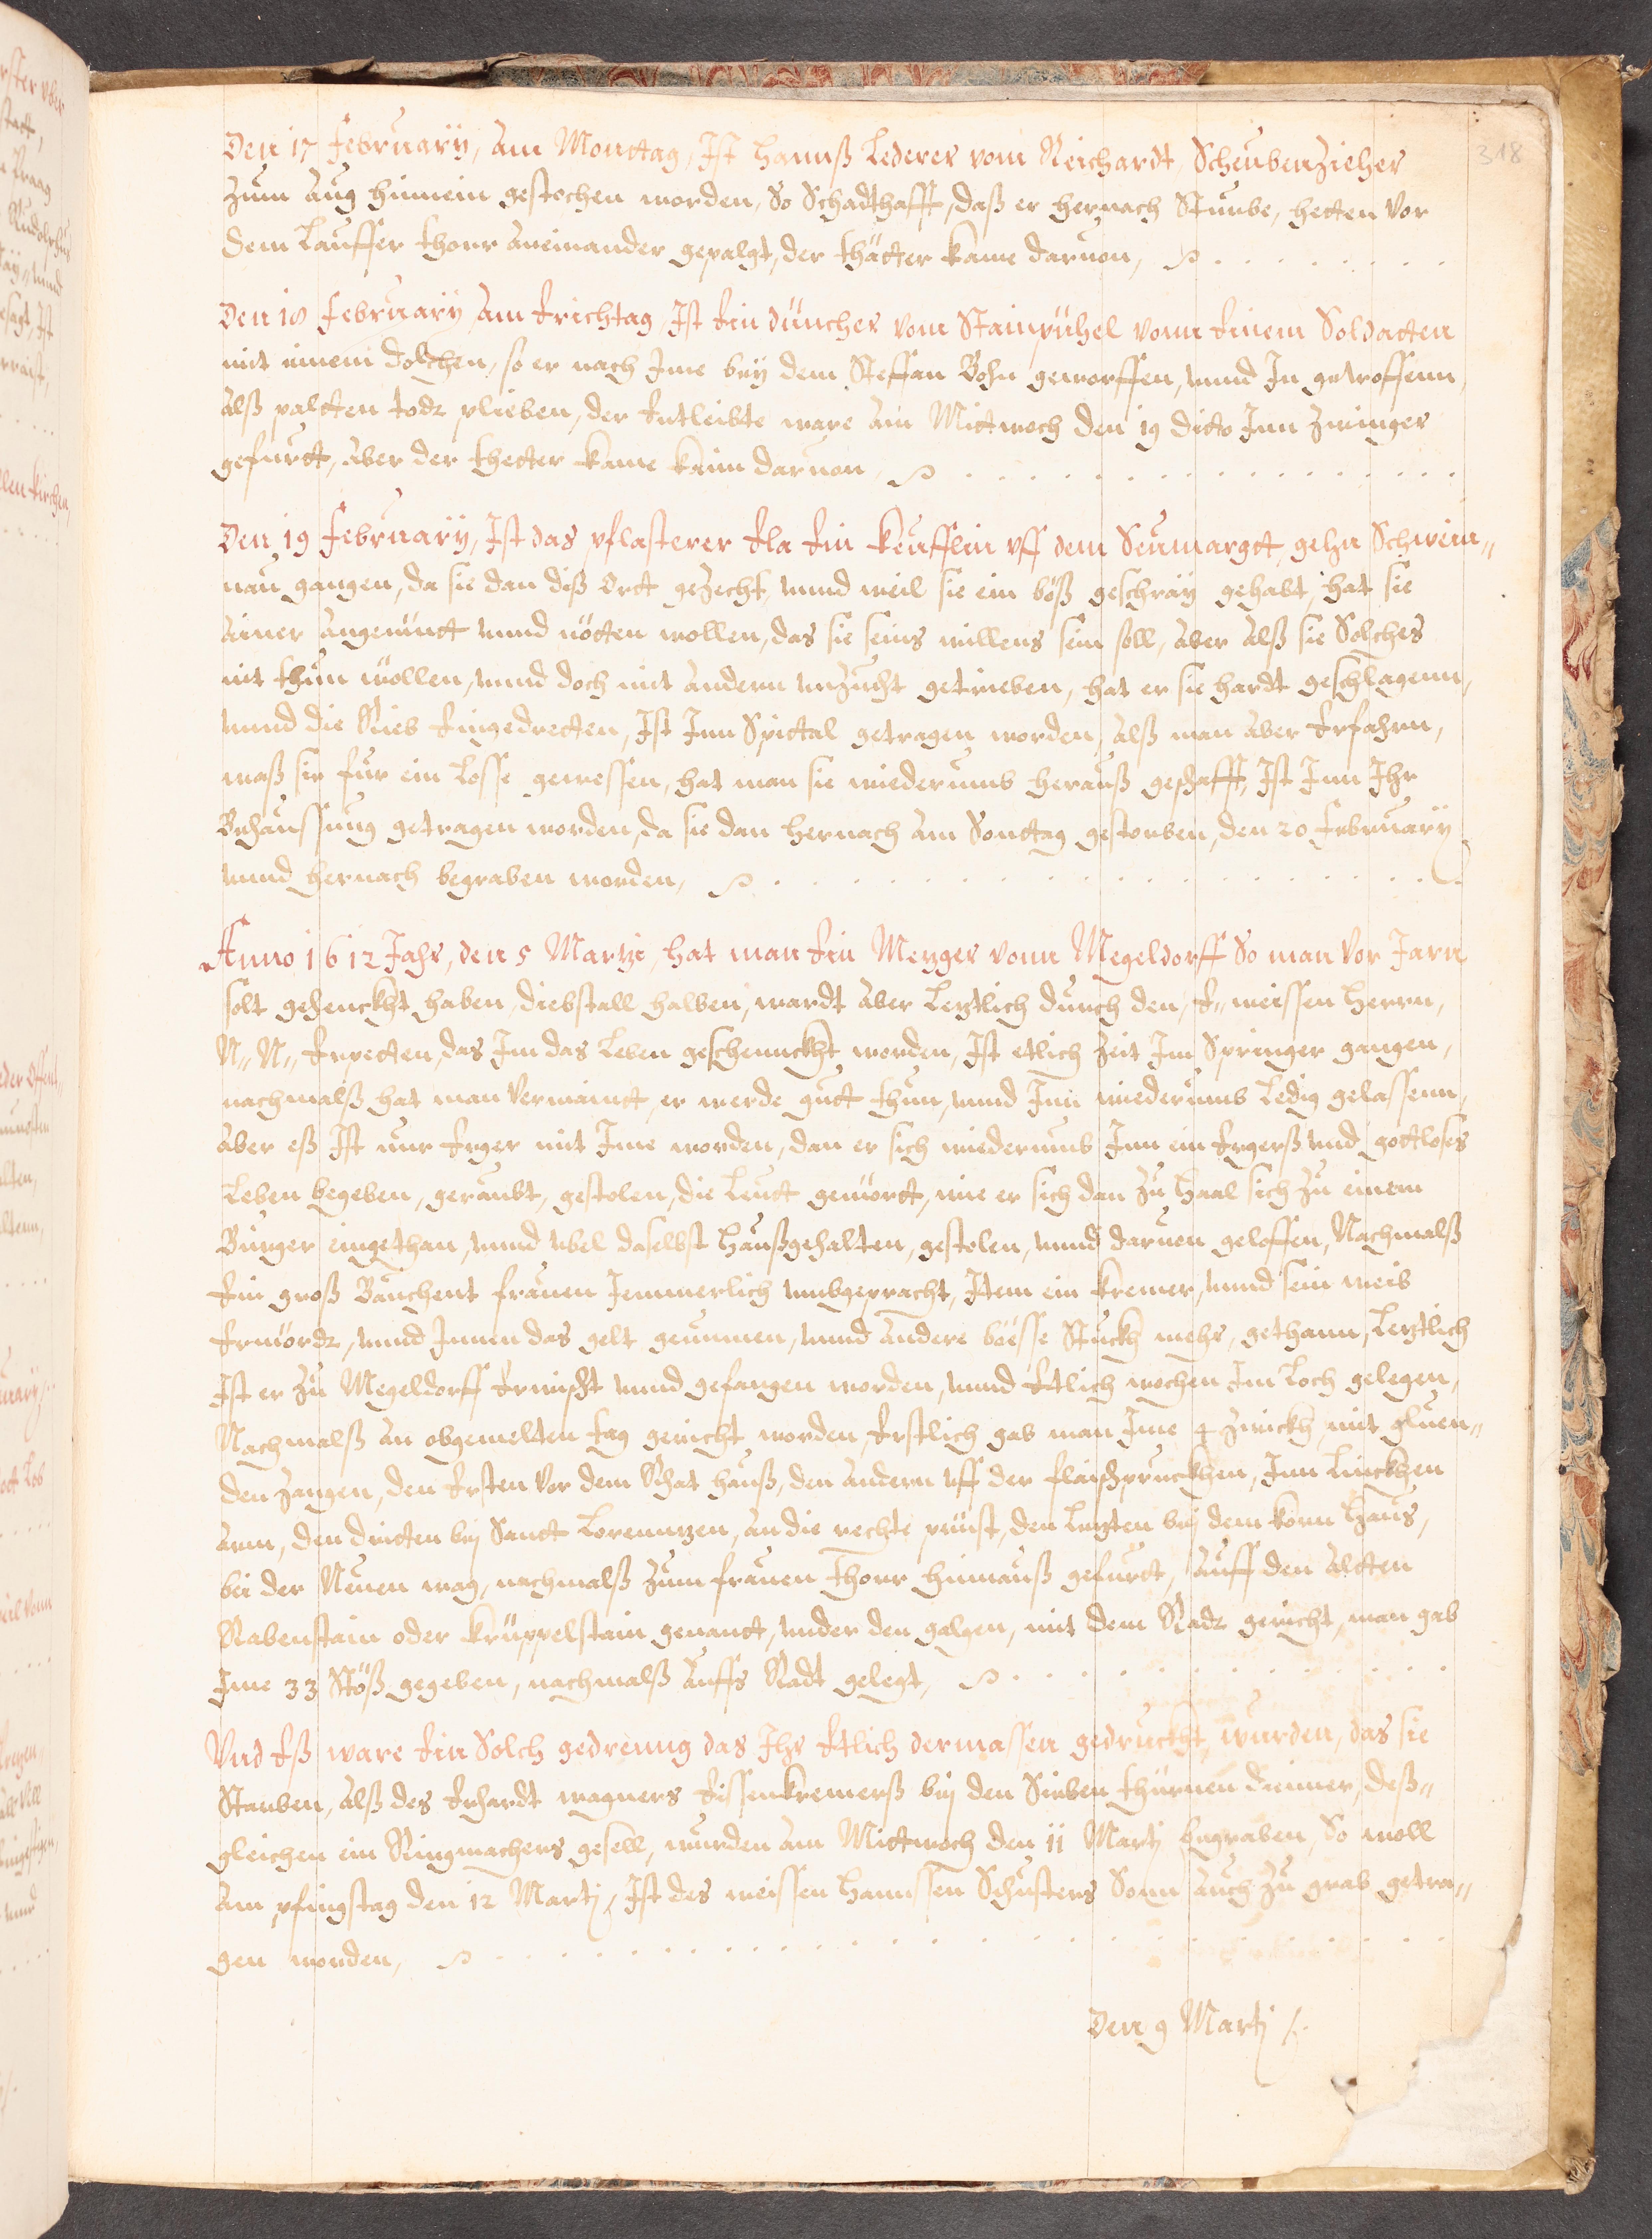 318
Den 17 February, Am Monttag, Ist Hannß Lederer vom Reichardt, Scheubenzieher
zum Aug hinnein gestochen worden, So Schadthafft, daß er hernach Sturbe, hetten vor
dem Lauffer thorr Aneinander gepalgt, der thätter kame daruon,
Den 18 February, Am Erichtag, Ist Ein düncher vom Stainpühel vonn Einem Soldatten
mit einem dolchen, so er nach Ime bey dem Steffan Bohn geworffen, vnnd In getroffenn,
Alß paltten todt plieben, der Entleibte ware Am Mittwoch den 19 ditto Inn Zwinger
gefurtt, Aber der thetter kame keim daruon,
Den 19 February, Ist das pflasterer Ela Ein keufflin vff dem Seumargtt, gehn Schwein„
nau gangen, da sie dan diß Ortt gezecht, vnnd weil sie ein böß geschray gehabt, hat sie
Ainer Angemutt vnnd nötten wollen, das sie seins willens sein soll, Aber Alß sie Solches
nit thun wöllen, vnnd doch mit Andern vnzucht getrieben, hat er sie hardt geschlagenn,
vnnd die Rieb Eingedretten, Ist Inn Spittal getragen worden, Alß man Aber Erfahrn,
waß sie für ein Losse gewessen, hat man sie wiederumb herauß geschafft, Ist Inn Ihr
Behaussung getragen worden, da sie dan hernach Am Sonttag gestorben, den 20 February
vnnd hernach begraben worden,
Anno 1612 Jahr, den 5 Martzi, hat man Ein Metzger vonn Megeldorff So man vor Jarn
solt gehenckht haben, diebstall halben, wardt Aber Letztlich durch den, E„ weissen Herrn,
N„ N„ Erpetten, das Im das Leben geschennckht worden, Ist etlich Zeit Im Springer gangen,
nachmalß hat man Vermaintt, er werde gutt thun, vnnd Inn wiederumb Ledig gelassenn,
Aber eß Ist nur Erger mit Ime worden, dan er sich wiederumb Inn ein Ergerß vnd gottloses
Leben begeben, geraubt, gestolen, die Leutt gemordt, wie er sich dan zu Haal sich zu einem
Burger eingethan, vnnd vbel daselbst Haußgehalten, gestolen, vnnd daruon geloffen, Nachmalß
Ein groß Bauchent frauen Jemmerlich vmbgepracht, Item ein kremer, vnnd sein weib
Ermördt, vnnd Innen das gelt genummen, vnnd Andere böesse Stuckh mehr, gethann, Letztlich
Ist er zu Megeldorff Erwischt vnnd gefangen worden, vnnd Ettlich wochen Im Loch gelegen,
Nachmalß An obgemelten tag gericht worden, Erstlich gab man Ime 4 zwickh, mit gluen„
den Zangen, den Ersten vor dem Rhat Hauß, den Andern vff der fleischpruckhen, Inn Linckhen
Arm, den dritten bej Sanctt Lorenntzen, An die rechte prüst, den Letzten bej dem korn Haus,
bei der Neuen wag, nachmalß zum frauen thorr hinnauß gefurtt, Auff den Altten
Rabenstain oder krüppelstain genantt, vnder den galgen, mit dem Radt gericht, man gab
Ime 33 Stöß gegeben, nachmalß Auffs Radt gelegt,
Vnd Eß ware Ein Solch gedreung das Ihr Etlich dermassen gedruckht, wurden, das sie
Starben, Alß des Erhardt wagners Eissenkremerß bej den Sieben thürnen dienner, deß„
gleichen ein Ringmachers gesell, wurden Am Mittwoch den 11 Martj begraben, So woll
Am pfingstag den 12 Martj, Ist des weissen Hannsen Schusters Sonn Auch zu grab getra„
gen worden,
Den 9 Martj